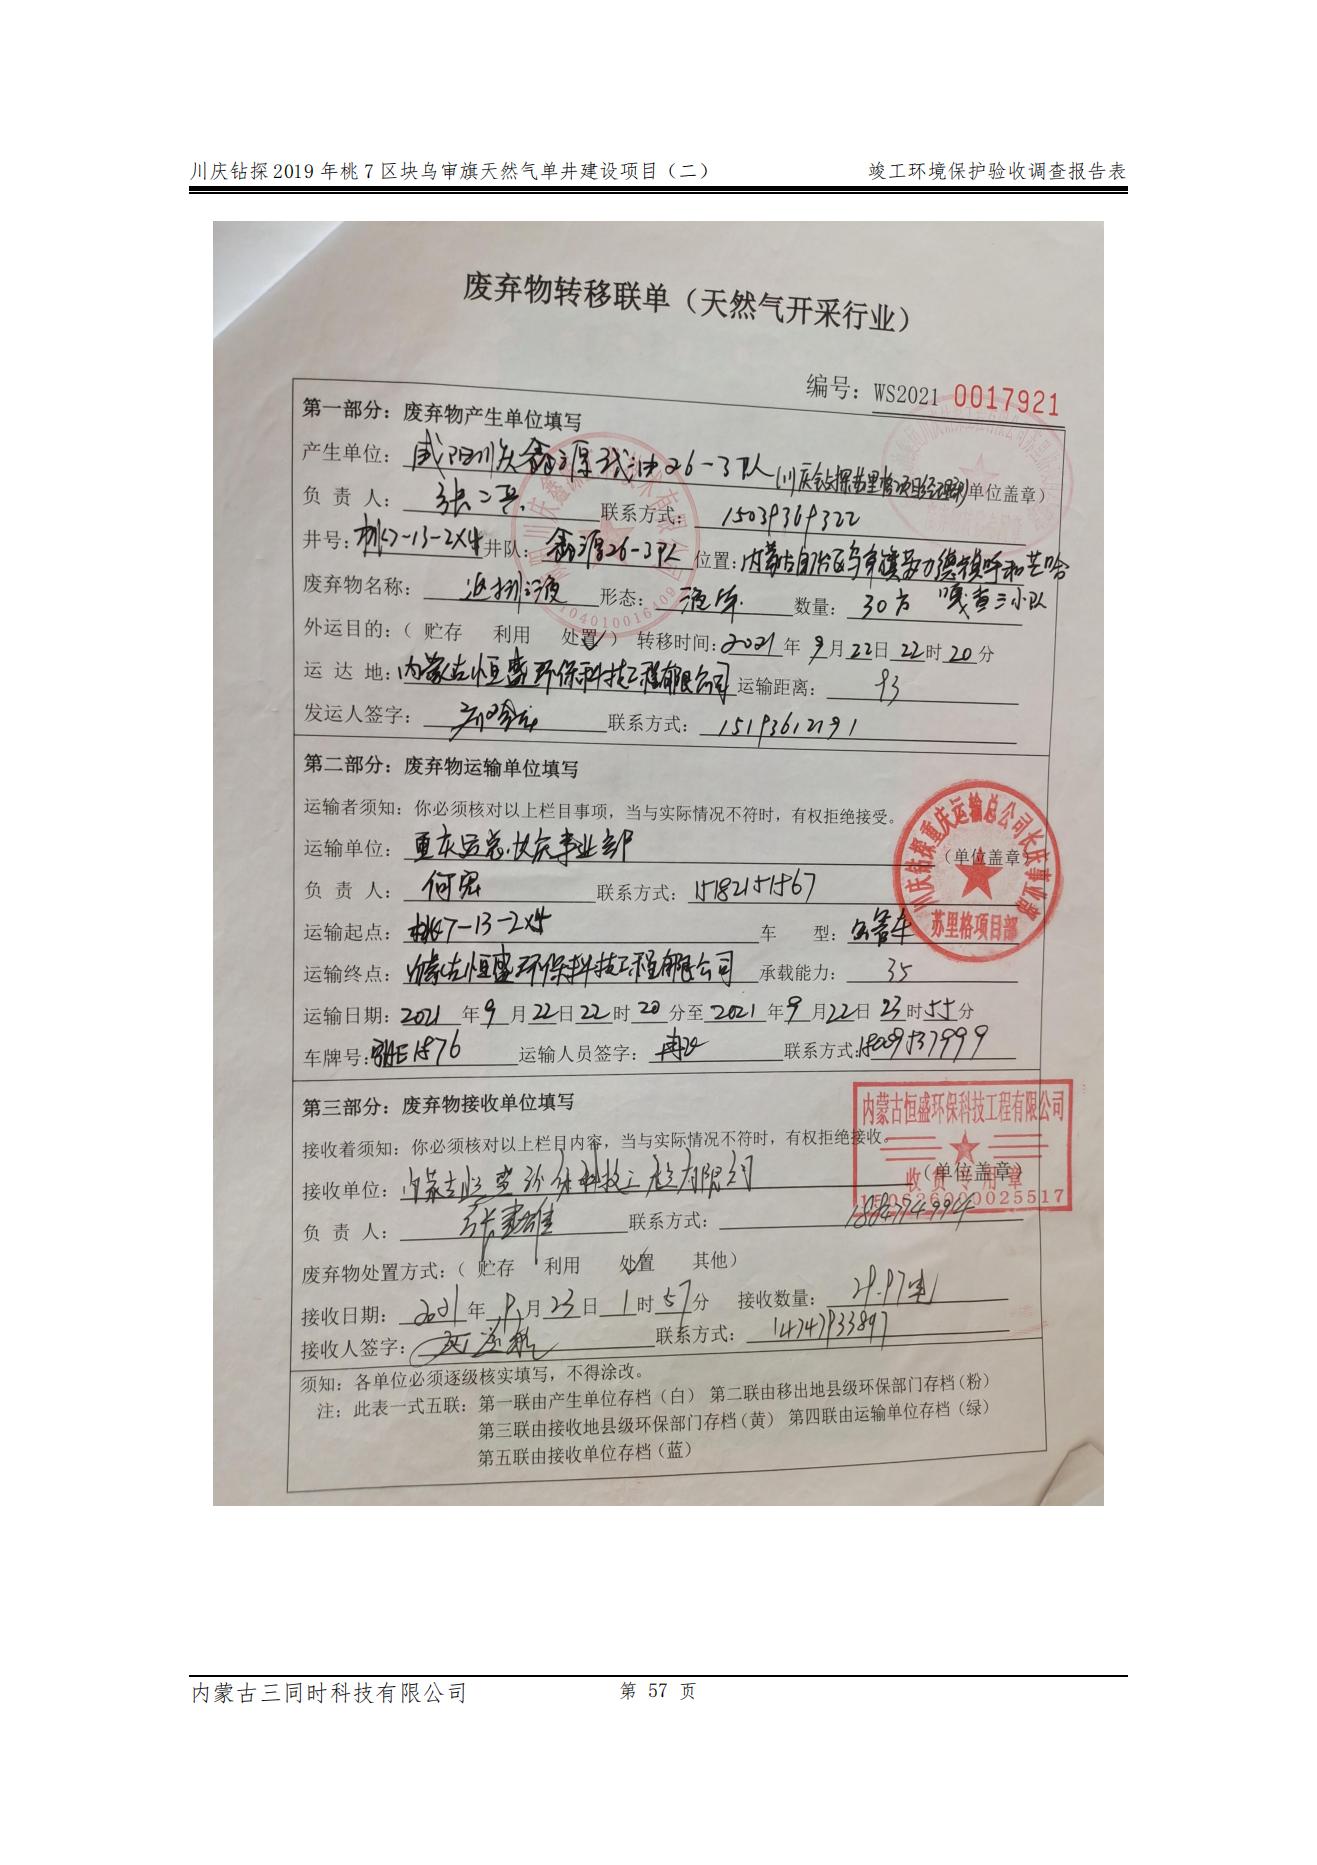 川庆钻探2019年桃7区块乌审旗天然气单井建设项目（二） 竣工环境保护验收调查报告表
废弃物转移联单（天然气开采行业）
编号：WS2021 0017921
第一部分：废弃物产生单位填写
产生单位： 26-3队（川庆钻探苏里格项目经理部）单位盖章）
负 责 人： 联系方式：15039369322
井号：桃7-13-2X4 井队：鑫源26-3队 位置：内蒙古自治区乌审旗苏力德镇呼和芒哈
嘎查三小队
废弃物名称：返排液 形态：液体 数量：30方
外运目的：（ 贮存 利用 处置√ ） 转移时间：2021年9月22日22时20分
运 达 地：内蒙古恒盛环保科技工程有限公司 运输距离：93
发运人签字： 联系方式：15193612191
第二部分：废弃物运输单位填写
运输者须知：你必须核对以上栏目事项，当与实际情况不符时，有权拒绝接受。
运输单位：重庆运总长庆事业部 （单位盖章）
负 责 人：何宏 联系方式：15182151567
运输起点：桃7-13-2X4 车 型：
运输终点：内蒙古恒盛环保科技工程有限公司 承载能力：35
运输日期：2021年9月22日22时20分至2021年9月22日23时55分
车牌号： 运输人员签字： 联系方式：18009537999
川庆钻探重庆运输总公司长庆事业部
苏里格项目部
第三部分：废弃物接收单位填写
接收着须知：你必须核对以上栏目内容，当与实际情况不符时，有权拒绝接收。
接收单位：内蒙古恒盛环保科技工程有限公司 （单位盖章）
负 责 人：张建雄 联系方式：
废弃物处置方式：（ 贮存 利用 处置√ 其他）
接收日期：2021年9月23日1时57分 接收数量：29.97
接收人签字： 联系方式：14747933897
内蒙古恒盛环保科技工程有限公司
收货专用章
1506260000025517
须知：各单位必须逐级核实填写，不得涂改。
注：此表一式五联：第一联由产生单位存档（白） 第二联由移出地县级环保部门存档（粉）
第三联由接收地县级环保部门存档（黄） 第四联由运输单位存档（绿）
第五联由接收单位存档（蓝）
内蒙古三同时科技有限公司 第 57 页